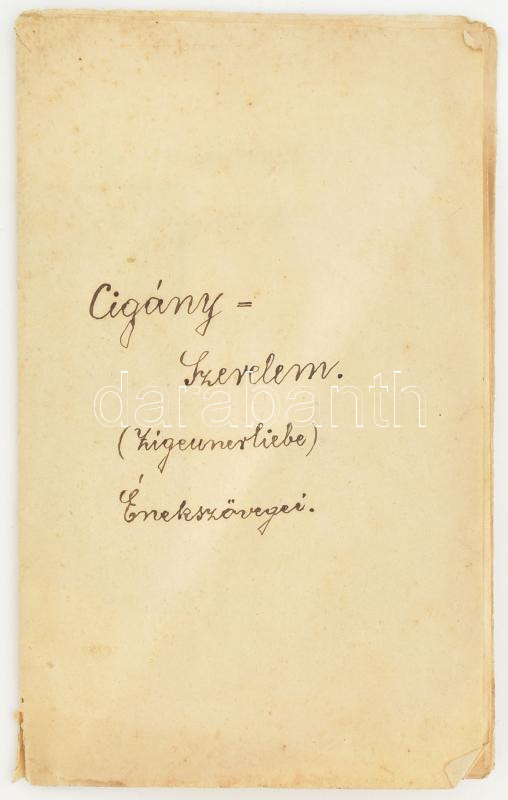 Cigány =
Szerelem.
darabanth
(Zigeunerliebe)
Énekszövegei.